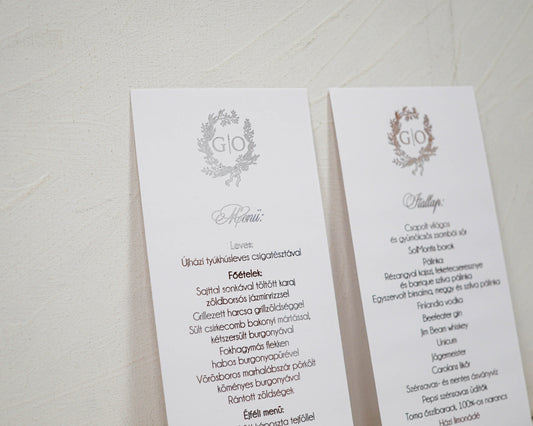 G|O
Menü:
Leves:
Újházi tyúkhúsleves csigatésztával
Főételek:
Sajttal sonkával töltött karaj
zöldborsós jázminrizzsel
Grillezett harcsa grillzöldséggel
Sült csirkecomb bakonyi mártással,
kétszersült burgonyával
Fokhagymás flekken
habos burgonyapürével
Vörösboros marhalábszár pörkölt
köményes burgonyával
Rántott zöldségek
Éjféli menü:
káposzta tejföllel
G|O
Itallap:
Csapolt világos
és gyümölcsös zsombói sör
SolMontis borok
Pálinka:
Rézangyal kajszi, feketecseresznye
és barique szilva pálinka
Egyszervolt birsalma, meggy és szilva pálinka
Finlandia vodka
Beefeater gin
Jim Bean whiskey
Unicum
Jägermeister
Carolans likőr
Szénsavas- és mentes ásványvíz
Pepsi szénsavas üdítők
Toma őszibarack, 100%-os narancs
Házi limonádé